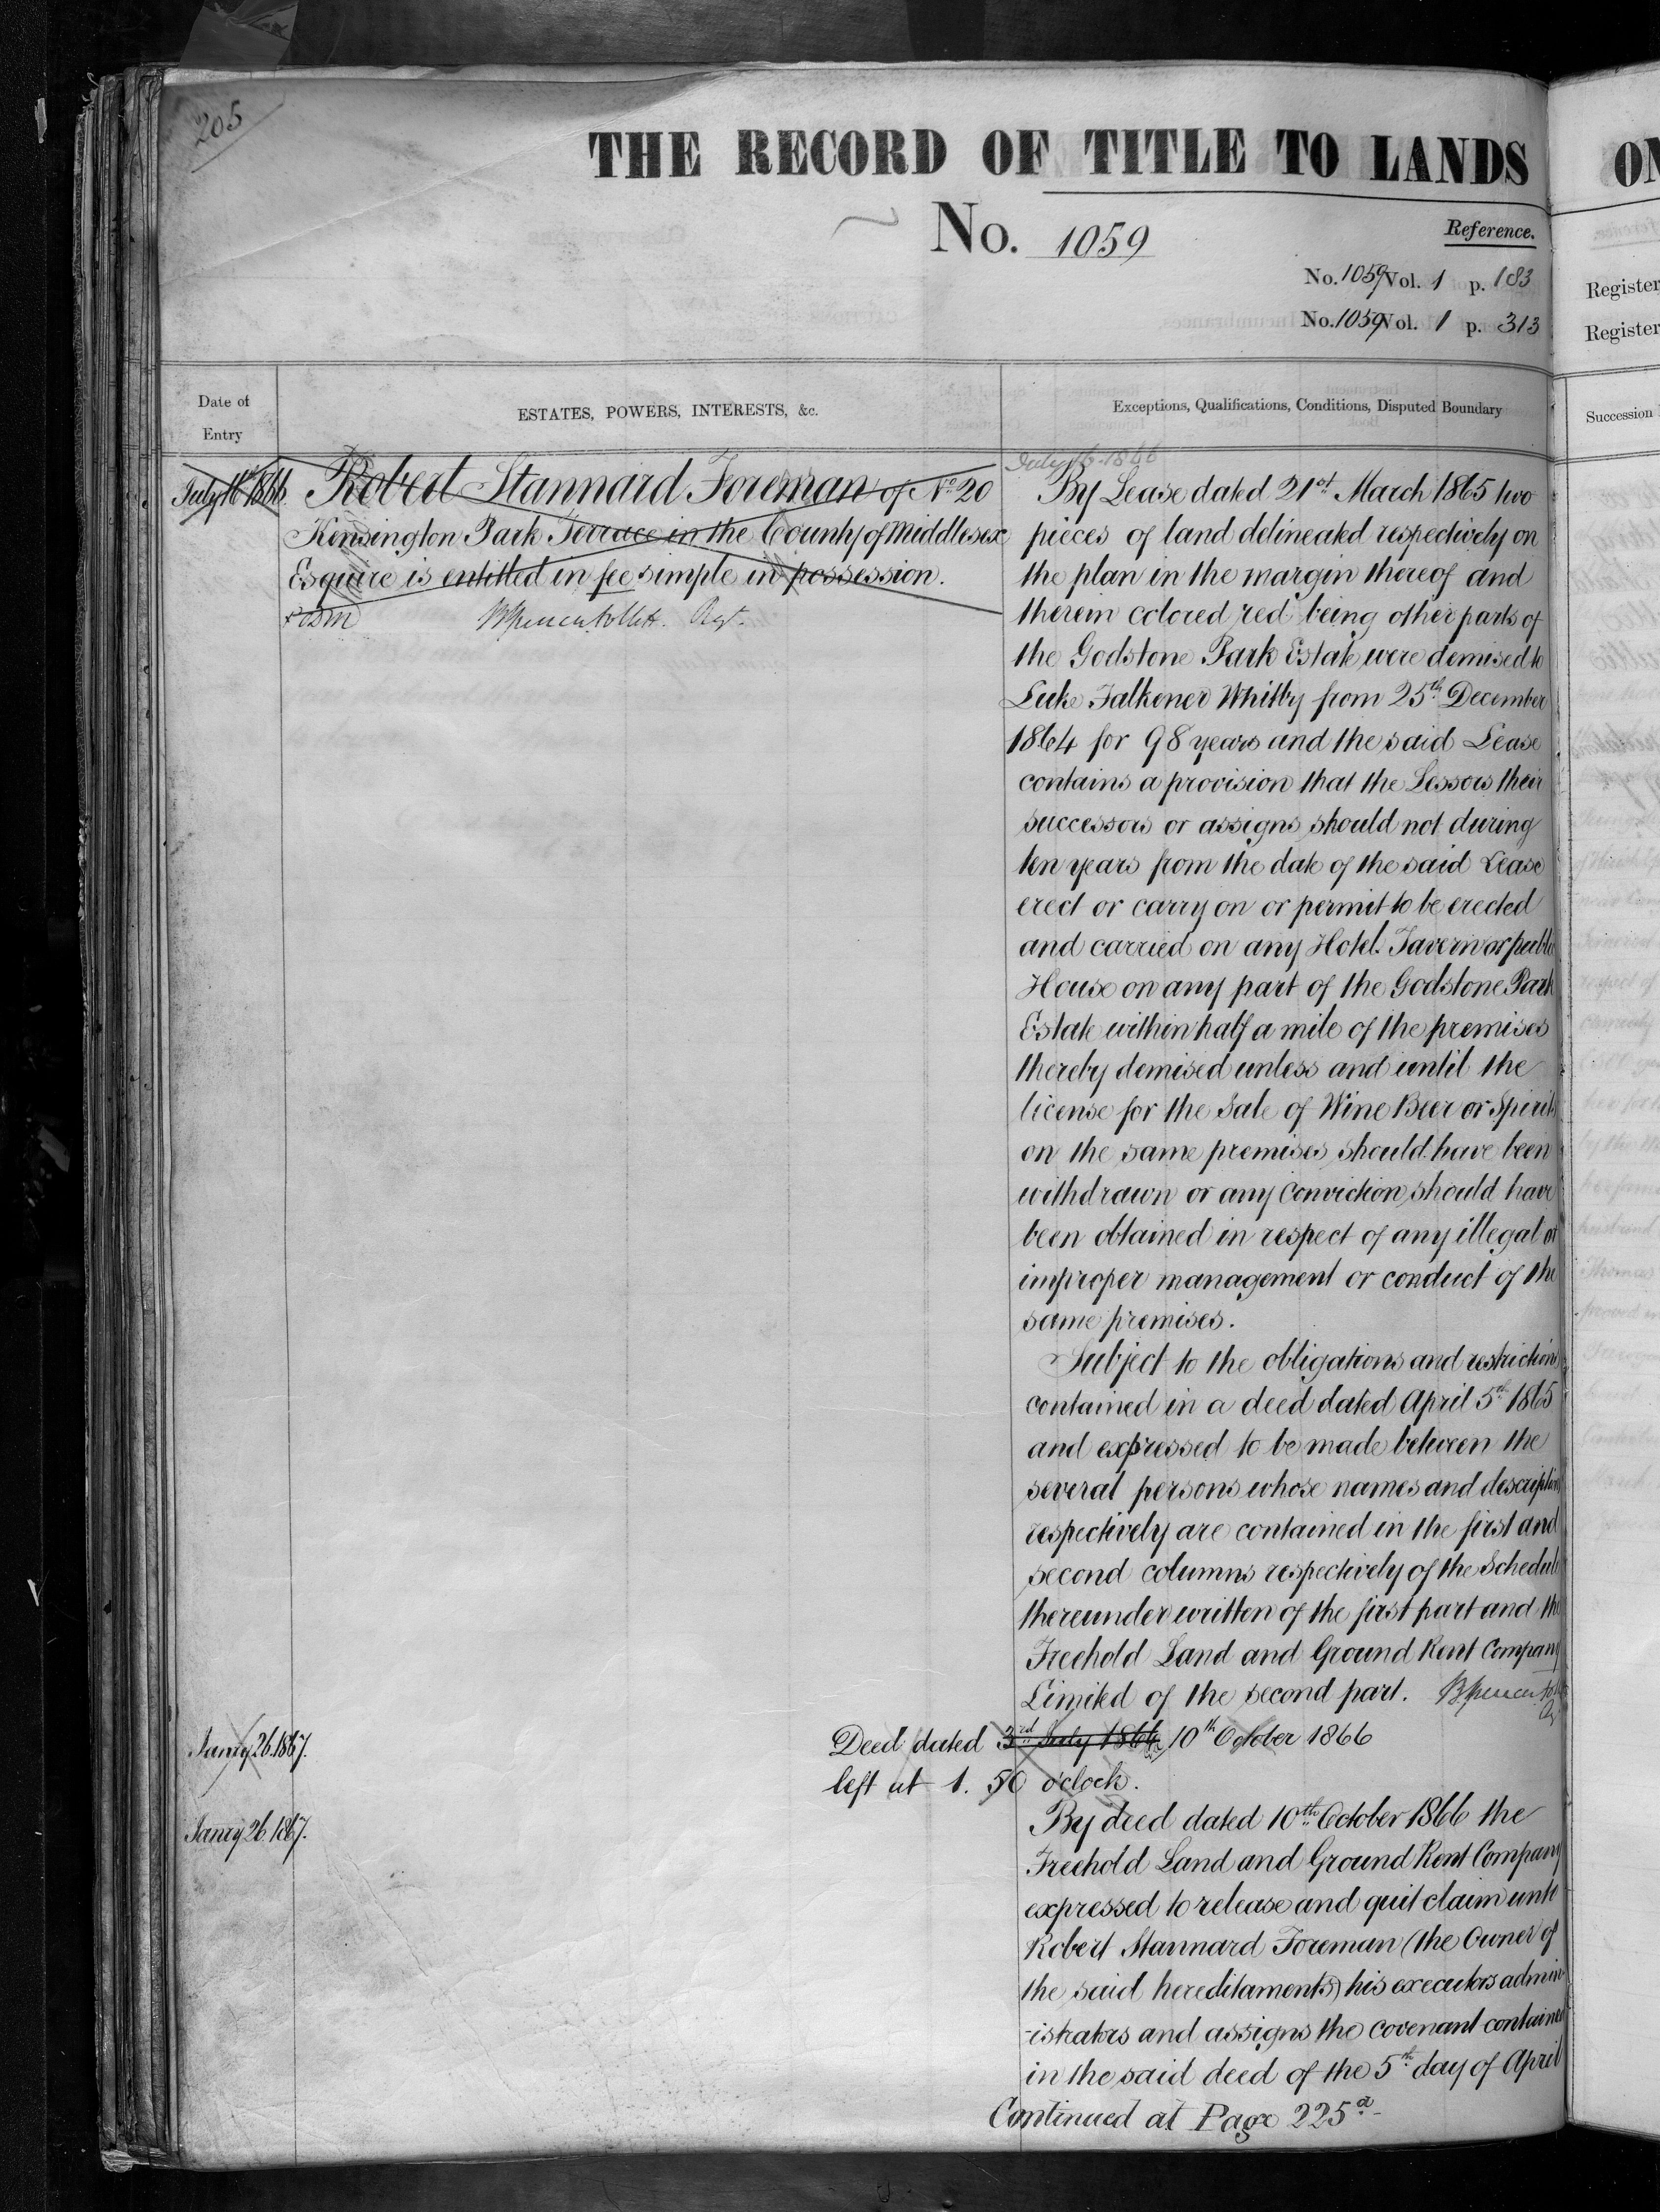 205
THE RECORD OF TITLE TO LANDS
No. 1059
Reference.
No. 1059 Vol. 1 p. 183
No. 1059 Vol. 1 p. 313
Date of Entry
ESTATES, POWERS, INTERESTS, &c.
Exceptions, Qualifications, Conditions, Disputed Boundary
July 16 1866.
Robert Stannard Foreman of No. 20
Kensington Park Terrace in the County of Middlesex
Esquire is entitled in fee simple in possession.
July 16 1866
By Lease dated 21st March 1865 two
pieces of land delineated respectively on
the plan in the margin thereof and
therein colored red being other parts of
the Godstone Park Estate were demised to
Luke Falkener Whitby from 25th December
1864 for 98 years and the said Lease
contains a provision that the Lessors their
successors or assigns should not during
ten years from the date of the said Lease
erect or carry on or permit to be erected
and carried on any Hotel Tavern or public
House on any part of the Godstone Park
Estate within half a mile of the premises
thereby demised unless and until the
license for the Sale of Wine Beer or Spirits
on the same premises should have been
withdrawn or any Conviction should have
been obtained in respect of any illegal or
improper management or conduct of the
same premises.
Subject to the obligations and restrictions
contained in a deed dated April 5th 1865
and expressed to be made between the
several persons whose names and descriptions
respectively are contained in the first and
second columns respectively of the Schedule
thereunder written of the first part and the
Freehold Land and Ground Rent Company
Limited of the second part.
Janry 26. 1867.
Deed dated 3rd July 1866 10th October 1866
left at 1. 50 o'clock.
Janry 26. 1867.
By deed dated 10th October 1866 the
Freehold Land and Ground Rent Company
expressed to release and quit claim unto
Robert Stannard Foreman (the Owner of
the said hereditaments) his executors admin-
-istrators and assigns the covenant contained
in the said deed of the 5th day of April
Continued at Page 225a
ON
Register
Register
Succession